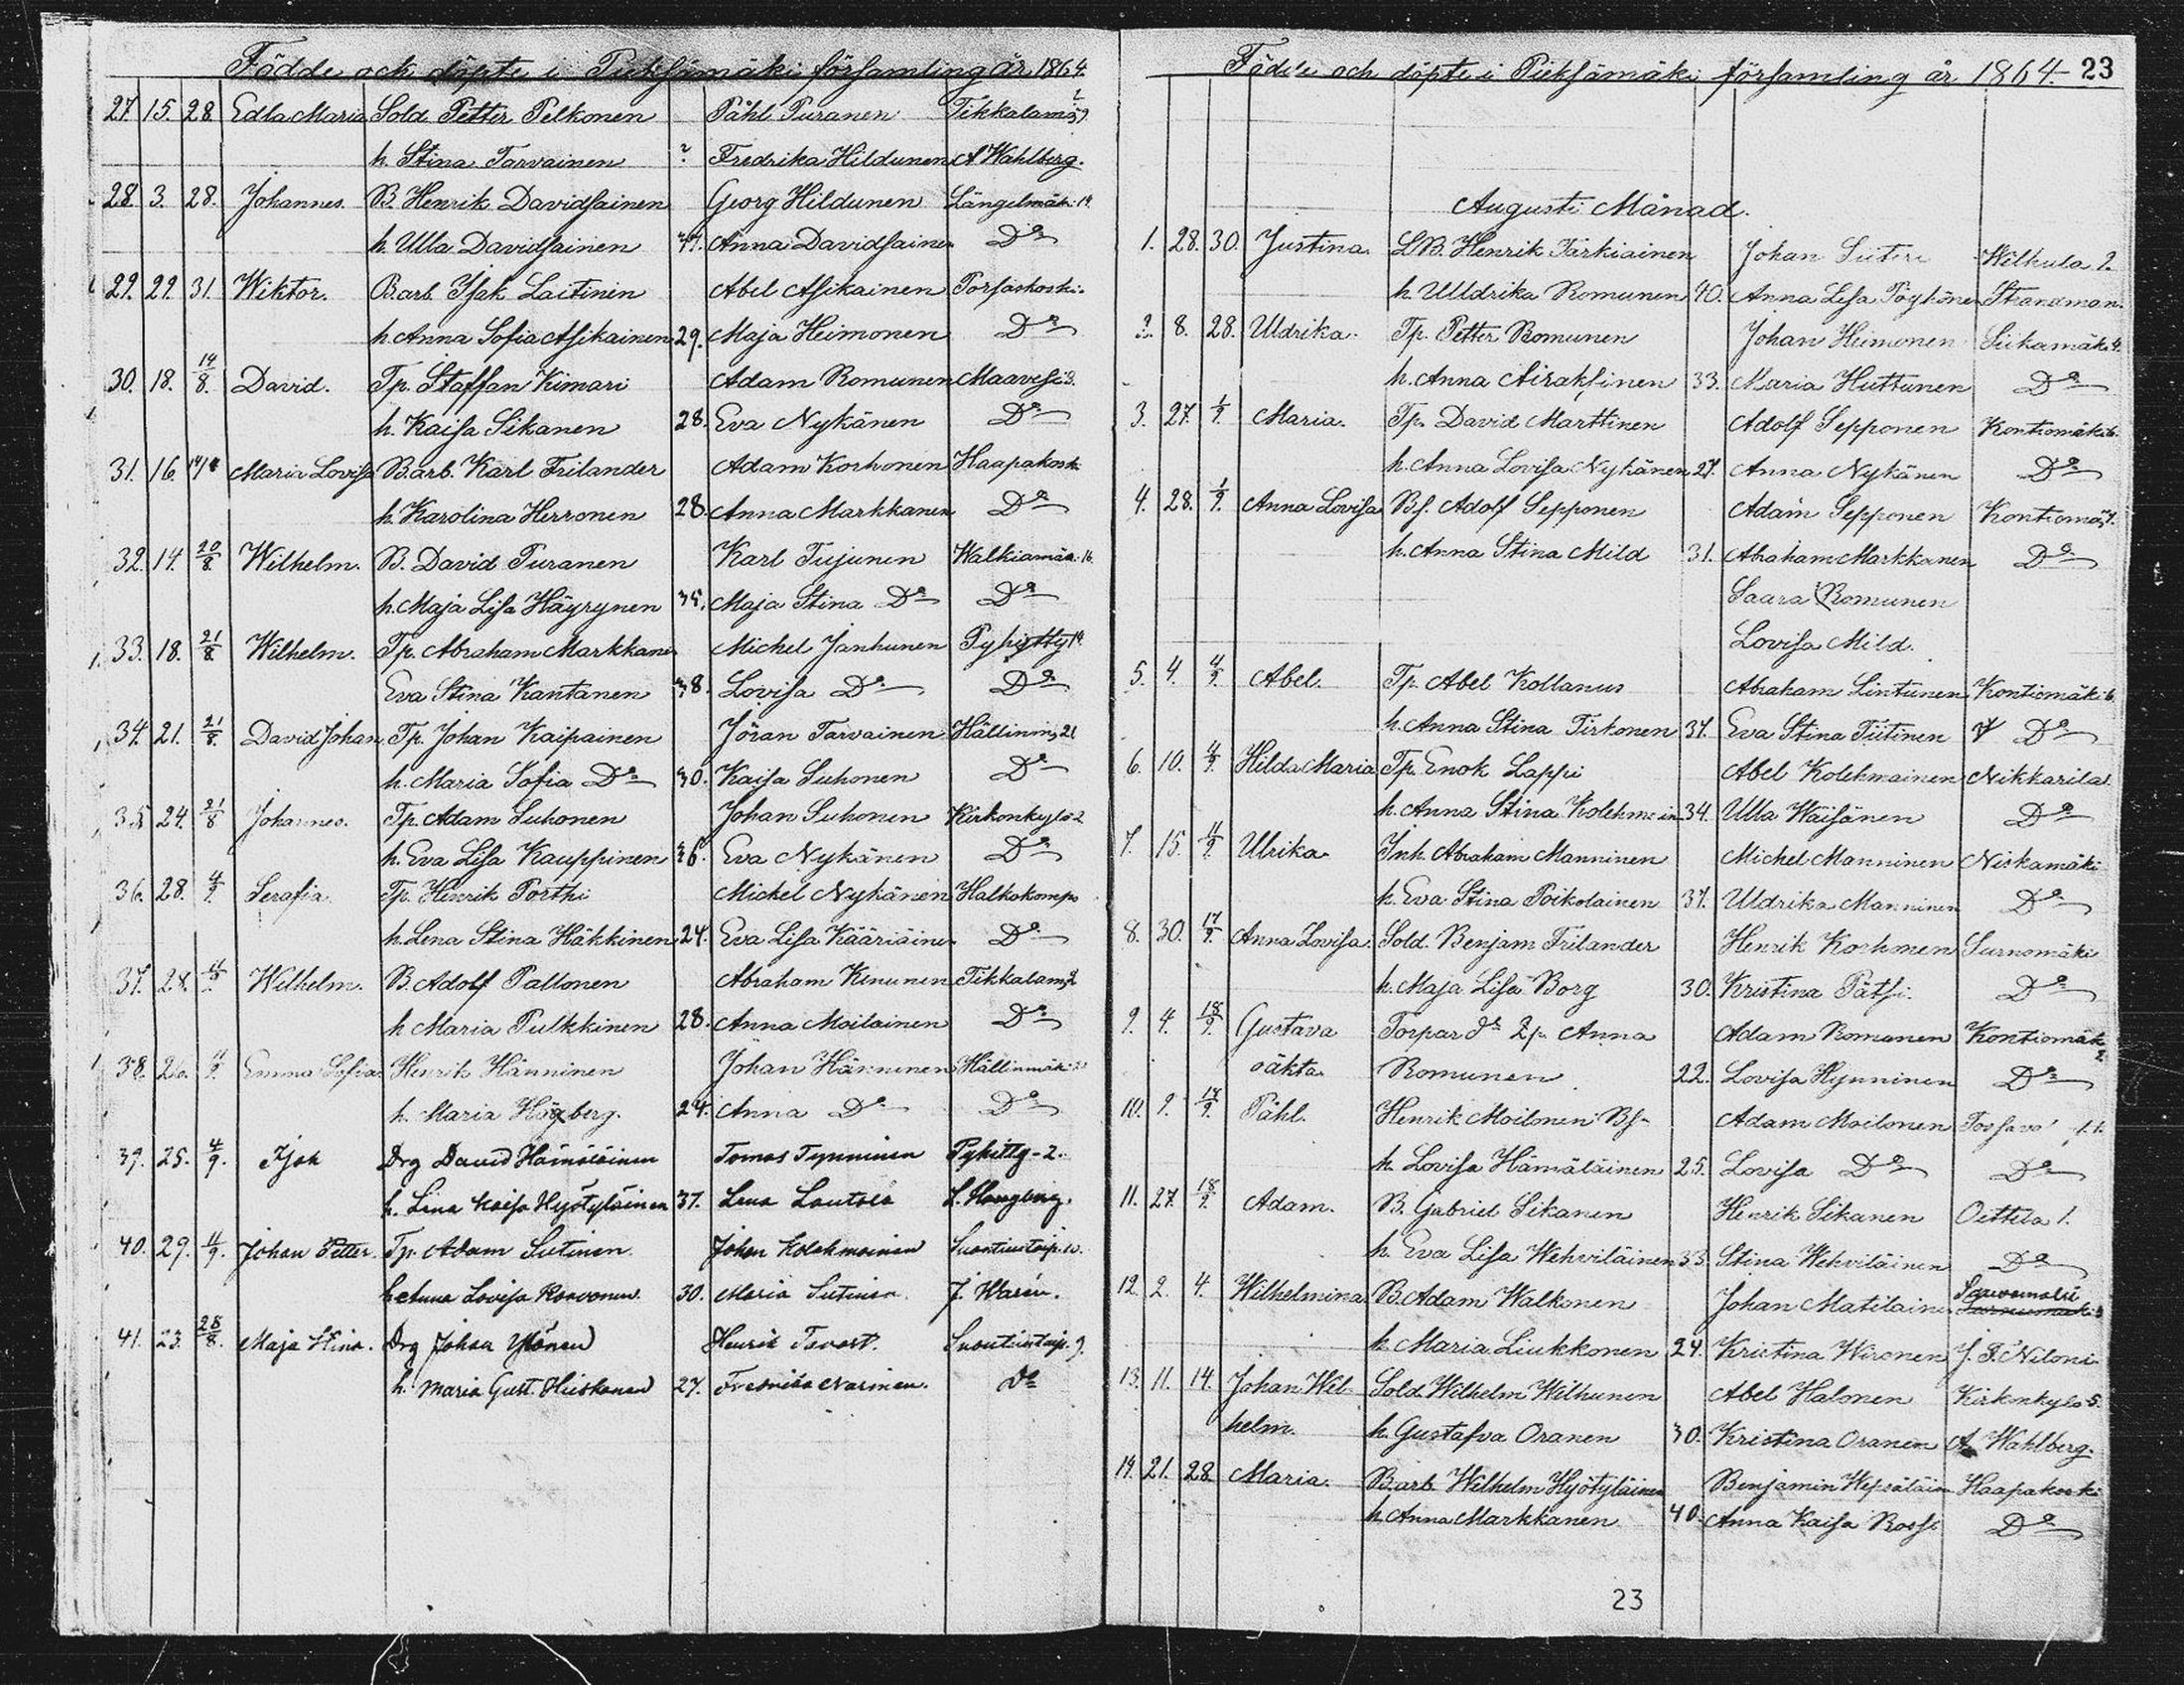 Födde och döpte i Pieksämäki församling år 1864.
27. 15. 28 Edla Maria Sold. Petter Pelkonen Påhl Puranen Tikkalam
h. Stina Tarvainen ? Fredrika Hildunen A Wahlberg.
28. 3. 28. Johannes. B. Henrik Davidsainen Georg Hildunen Längelmäki 14
h. Ulla Davidsainen 47. Anna Davidsainen Do
29. 29. 31. Wiktor. Barb. Isak Laitinen Abel Asikainen Porsaskoski.
h. Anna Sofia Asikainen 29. Maja Heimonen Do
30. 18. 14/8. David. Tp. Staffan Kimari Adam Romunen Maavesi 3.
h. Kaisa Sikanen 28. Eva Nykänen Do
31. 16. Maria Lovisa Barb. Karl Frilander Adam Korhonen Haapakosk
h. Karolina Herronen 28. Anna Markkanen Do
32. 14. 20/8 Wilhelm. B. David Puranen Karl Tujunen Walkiamäki 16.
h. Maja Lisa Häyrynen 35. Maja Stina Do Do
33. 18. 21/8 Wilhelm. Tp. Abraham Markkanen Michel Janhunen Pyhitty 14
Eva Stina Kantanen 38. Lovisa Do Do
34. 21. 21/8. David Johan Tp. Johan Kaipainen Jöran Tarvainen Hällinmä 21
h. Maria Sofia Do 30. Kaisa Suhonen Do
35 24. 21/8 Johannes. Tp. Adam Suhonen Johan Suhonen Kirkonkylä 2
h. Eva Lisa Kauppinen 26. Eva Nykänen Do
36. 28. 4/9 Serafia. Tp. Henrik Porthi Michel Nykänen Halkokompo
h. Lena Stina Häkkinen 24. Eva Lisa Kääriäinen Do
37. 28. 4/9. Wilhelm. B. Adolf Pallonen Abraham Kinunen Tikkalam 2
h Maria Pulkkinen 28. Anna Moilainen Do
38. 26. 4/9. Emma Sofia Henrik Hänninen Johan Hänninen Hällinmäki
h. Maria Högberg. 24. Anna Do Do
39. 25. 4/9. Isak Drg David Hämäläinen Tomas Tynninen Pyhitty - 2.
h. Lina Kaisa Hyötyläinen 37. Lena Lautala
40. 29. 4/9. Johan Petter. Tp. Adam Sutinen Johan Kolehmainen Suontientaip. 10.
h Anna Lovisa Korvonen 30. Maria Sutinen J. Warén.
41. 23. 28/8. Maja Stina. Drg Johan Ylönen Henrik Tavast. Suontientaip. 9.
h. Maria Gust. Hiiskanen 27. Fredrika Narinen. Do
Födde och döpte i Pieksämäki församling år 1864. 23
Augusti Månad.
1. 28. 30. Justina. LB. Henrik Tarkiainen Johan Wilhula 2.
h. Ulldrika Romunen 40. Anna Lisa Pöyhönen Strandman.
2. 8. 28. Uldrika. Tp. Petter Romunen Johan Heimonen Siikamäki 4.
h. Anna Airaksinen 33. Maria Huttunen Do
3. 27. 1/9. Maria. Tp. David Marttinen Adolf Sepponen Kontiomäki 6.
h. Anna Lovisa Nykänen 27. Anna Nykänen Do
4. 28. 1/9. Anna Lovisa Bs. Adolf Sepponen Adam Sepponen Kontiomä 7.
h. Anna Stina Mild 31. Abraham Markkanen Do
Saara Romunen
Lovisa Mild.
5. 4. 4/9. Abel. Tp. Abel Kollanus Abraham Lintunen Kontiomäki 6.
h. Anna Stina Pirkonen 37. Eva Stina Tiitinen Do
6. 10. 4/9. Hilda Maria Tp. Enok Lappi Abel Kolehmainen Nikkarila
h. Anna Stina Kolehmain 34. Ulla Wäisänen Do
7. 15. 11/9. Ulrika. Inh. Abraham Manninen Michel Manninen Niskamäki
h. Eva Stina Poikolainen 37. Uldrika Manninen Do
8. 30. 17/9. Anna Lovisa. Sold. Benjam Frilander Henrik Korhonen Surnomäki
h. Maja Lisa Borg 30. Kristina Pätsi. Do
9. 4. 18/9. Gustava Torpar dr Anna Adam Romunen Kontiomäk 2.
oäkta. Romunen 22. Lovisa Hynninen Do
10. 9. 17/9. Påhl. Henrik Moilonen Bs. Adam Moilonen
h. Lovisa Hämäläinen 25. Lovisa Do Do
11. 27. 18/9. Adam. B. Gabriel Sikanen Henrik Sikanen Oittila 1.
h. Eva Lisa Wehviläinen 33. Stina Wehviläinen Do
12. 2. 4. Wilhelmina B. Adam Walkonen Johan Matilainen
h. Maria Liukkonen 24. Kristina Wironen J. F. Niloni
13. 11. 14. Johan Wil- Sold. Wilhelm Wilhunen Abel Halonen Kirkonkylä 5.
helm. h. Gustafva Oranen 30. Kristina Oranen A Wahlberg.
14. 21. 28. Maria. Barb. Wilhelm Hyötyläinen Benjamin Hepsäläin Haapakoski
h. Anna Markkanen 40. Anna Kaisa Do
23